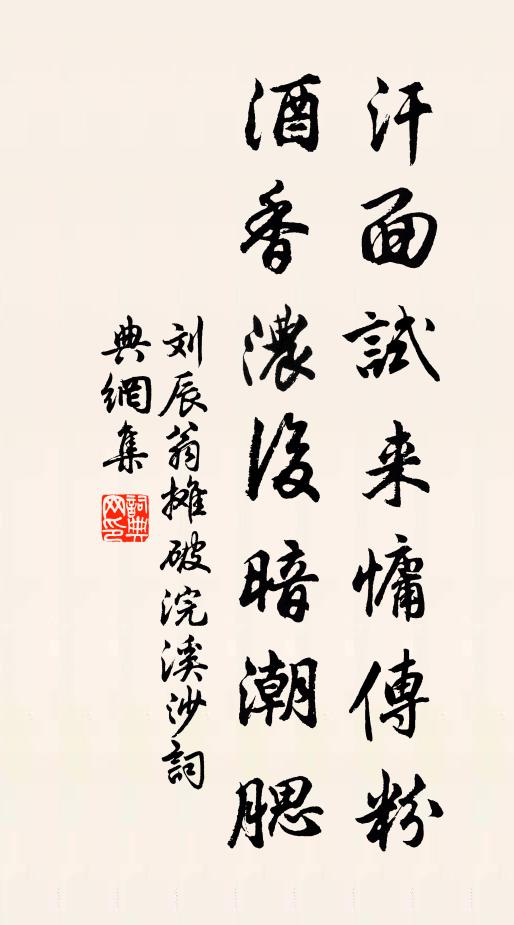 汗面試来慵傅粉
酒香濃後暗潮腮
刘辰翁摊破浣溪沙詞
典網集
詞典网印